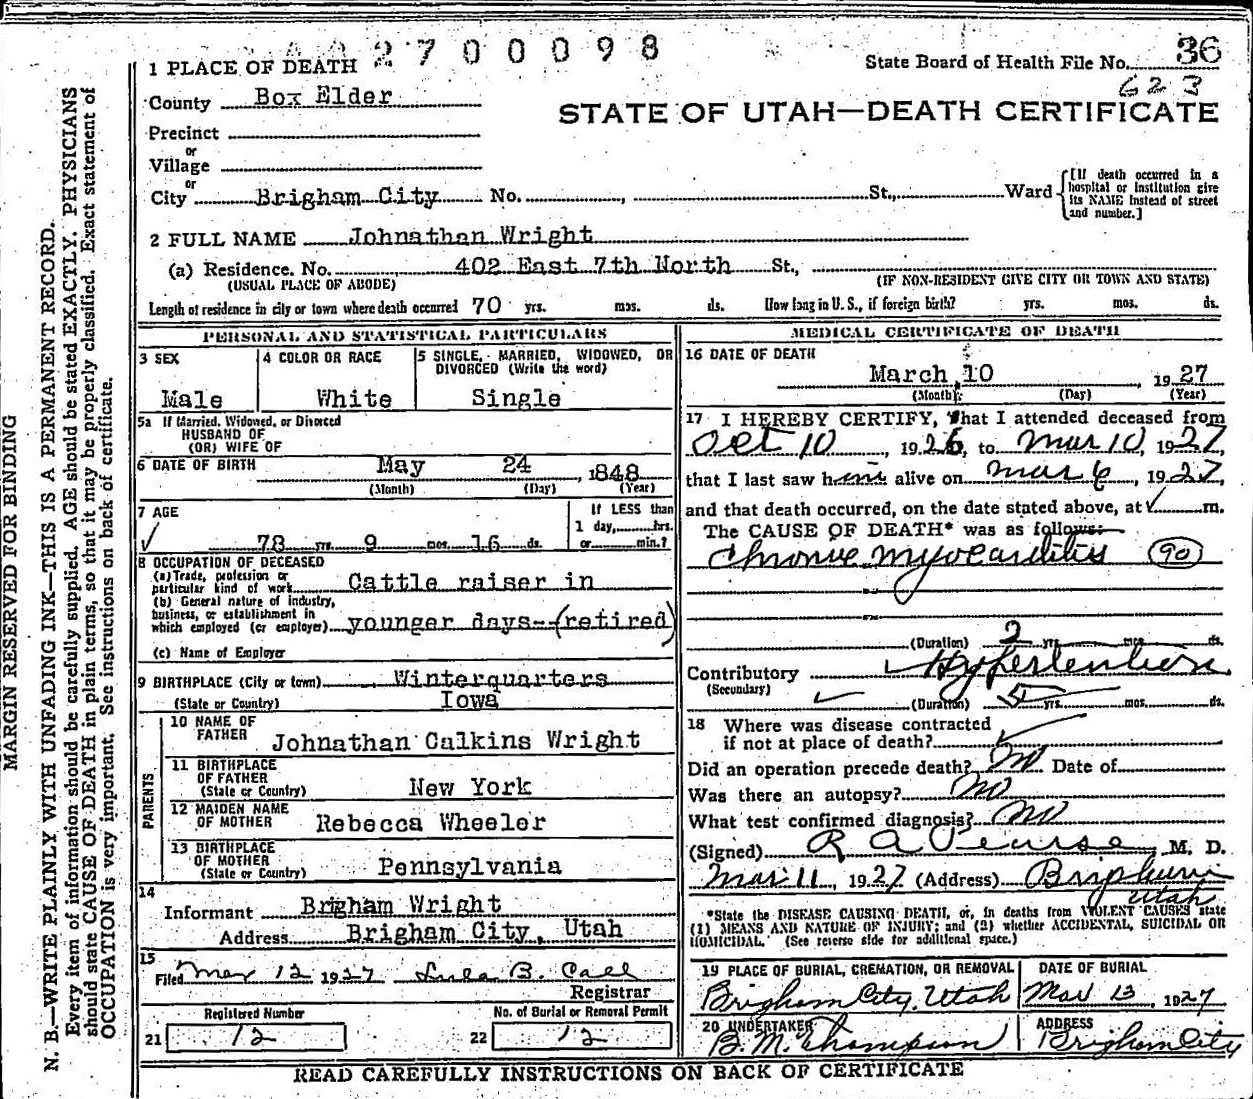 2700098
1 PLACE OF DEATH
State Board of Health File No. 36
623
County Box Elder
STATE OF UTAH—DEATH CERTIFICATE
Precinct
or
Village
or
City Brigham City No. , St., Ward
[If death occurred in a hospital or institution give its NAME instead of street and number.]
2 FULL NAME Johnathan Wright
(a) Residence. No. 402 East 7th North St.,
(USUAL PLACE OF ABODE) (IF NON-RESIDENT GIVE CITY OR TOWN AND STATE)
Length of residence in city or town where death occurred 70 yrs. mos. ds. How long in U. S., if foreign birth? yrs. mos. ds.
PERSONAL AND STATISTICAL PARTICULARS
3 SEX
Male
4 COLOR OR RACE
White
5 SINGLE, MARRIED, WIDOWED, OR
DIVORCED (Write the word)
Single
5a If Married, Widowed, or Divorced
HUSBAND OF
(OR) WIFE OF
6 DATE OF BIRTH May 24, 1848
(Month) (Day) (Year)
7 AGE
78 yrs. 9 mos. 16 ds.
If LESS than
1 day, hrs.
or min.?
8 OCCUPATION OF DECEASED
(a) Trade, profession or
particular kind of work Cattle raiser in
(b) General nature of industry,
business, or establishment in
which employed (or employer) younger days--(retired)
(c) Name of Employer
9 BIRTHPLACE (City or town) Winterquarters
(State or Country) Iowa
PARENTS
10 NAME OF
FATHER Johnathan Calkins Wright
11 BIRTHPLACE
OF FATHER
(State or Country) New York
12 MAIDEN NAME
OF MOTHER Rebecca Wheeler
13 BIRTHPLACE
OF MOTHER
(State or Country) Pennsylvania
14
Informant Brigham Wright
Address Brigham City, Utah
15
Filed Mar 12 1927 Lula B. Call
Registrar
Registered Number
21 12
No. of Burial or Removal Permit
22 12
MEDICAL CERTIFICATE OF DEATH
16 DATE OF DEATH
March 10, 1927
(Month) (Day) (Year)
17 I HEREBY CERTIFY, That I attended deceased from
Oct 10, 1926, to Mar 10, 1927,
that I last saw him alive on Mar 6, 1927,
and that death occurred, on the date stated above, at m.
The CAUSE OF DEATH* was as follows:
Chronic myocarditis (90)
(Duration) 2 yrs. mos. ds.
Contributory Hypertention
(Secondary)
(Duration) 5 yrs. mos. ds.
18 Where was disease contracted
if not at place of death?
Did an operation precede death? No Date of
Was there an autopsy? No
What test confirmed diagnosis? No
(Signed) R A Pearse, M. D.
Mar 11, 1927 (Address) Brigham
Utah
*State the DISEASE CAUSING DEATH, or, in deaths from VIOLENT CAUSES state
(1) MEANS AND NATURE OF INJURY; and (2) whether ACCIDENTAL, SUICIDAL OR
HOMICIDAL. (See reverse side for additional space.)
19 PLACE OF BURIAL, CREMATION, OR REMOVAL
Brigham City, Utah
DATE OF BURIAL
Mar 13, 1927
20 UNDERTAKER
B. M. Thompson
ADDRESS
Brigham City
READ CAREFULLY INSTRUCTIONS ON BACK OF CERTIFICATE
MARGIN RESERVED FOR BINDING
N. B.—WRITE PLAINLY WITH UNFADING INK—THIS IS A PERMANENT RECORD.
Every item of information should be carefully supplied. AGE should be stated EXACTLY. PHYSICIANS
should state CAUSE OF DEATH in plain terms, so that it may be properly classified. Exact statement of
OCCUPATION is very important. See instructions on back of certificate.